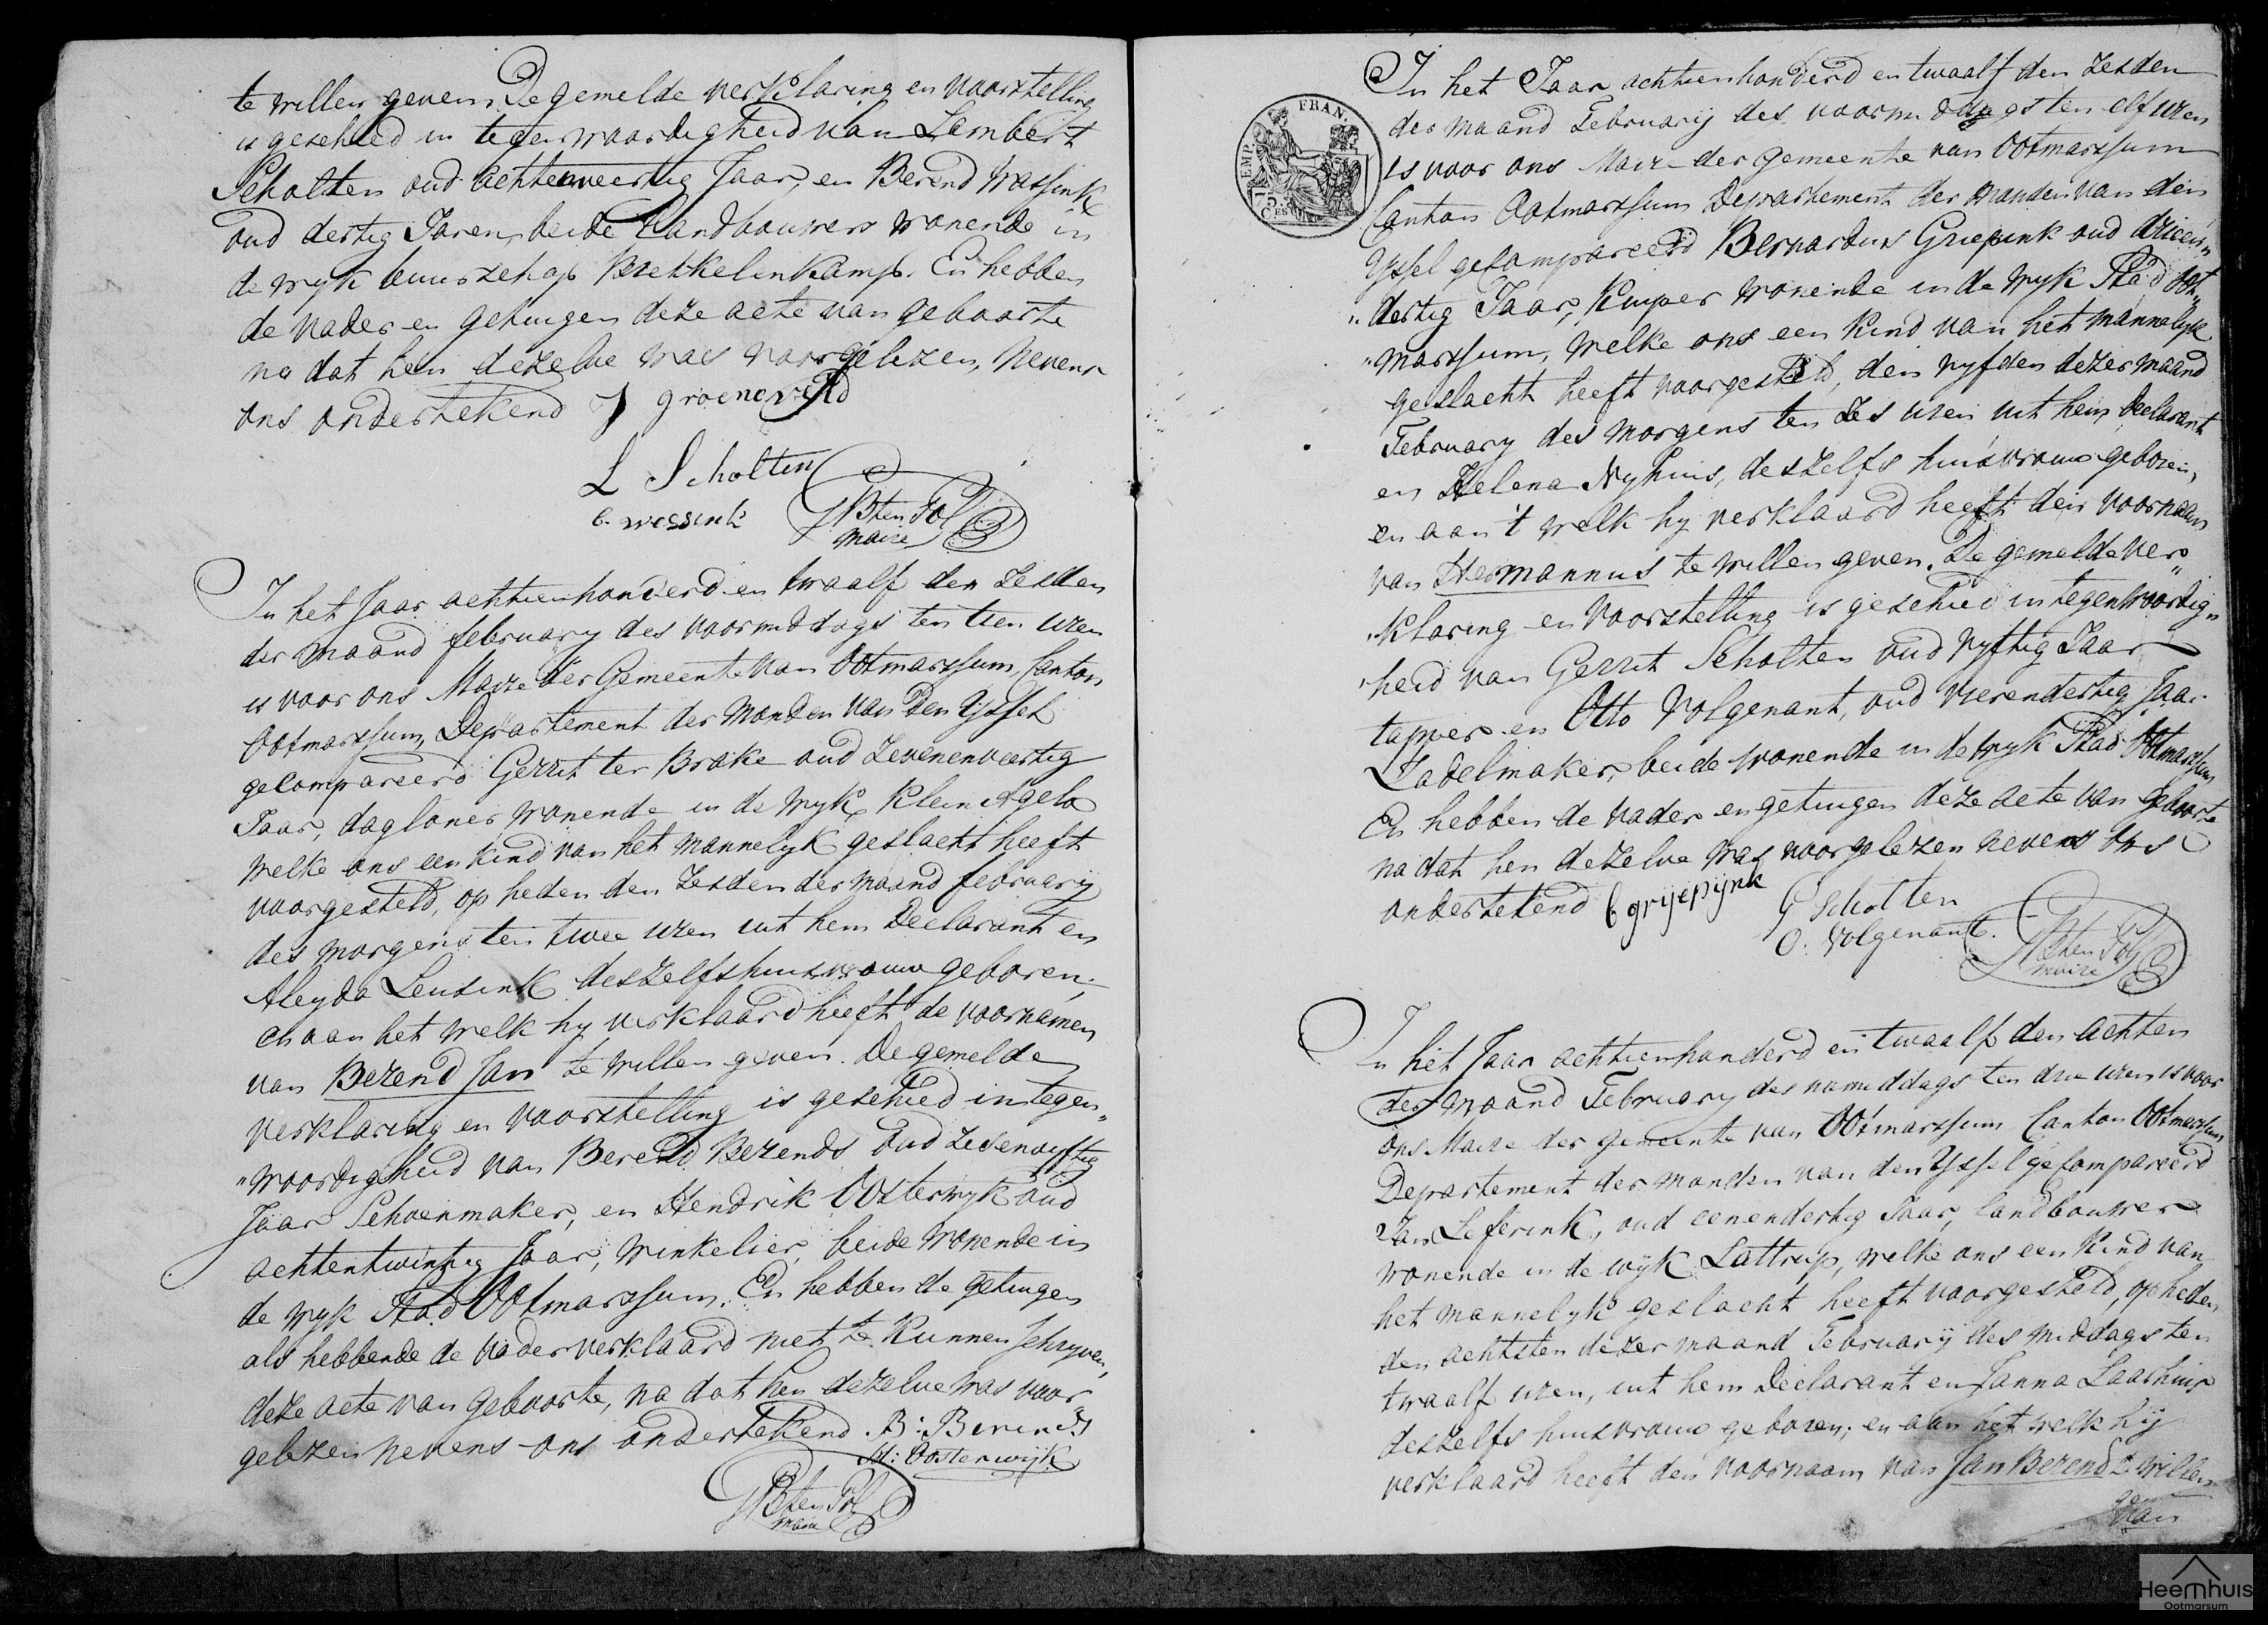 te willen geven. De gemelde verklaring en voorstelling
is geschied in tegenwaardigheid van Lambert
Scholten oud achtenveertig Jaar, en Berend Wassink
oud dertig Jaren, beide Landbouwers wonende in
de wyk buurschap Brekkelenkamp. En hebben
de vader en getuigen deze acte van geboorte
na dat hen dezelve was voorgelezen, nevens
ons ondertekend J groeneveld
L Scholten
b. wessink
JB ten Pol
maire
In het Jaar achttienhonderd en twaalf den zesden
der maand february des voormiddags ten tien uren
is voor ons Maire der Gemeente van Ootmarssum, Canton
Ootmarssum, Departement der Monden van den Yssel
gecompareerd Gerrit ter Brake oud zevenenveertig
Jaar, dagloner wonende in de wyk Klein Agelo
welke ons een kind van het mannelyk geslacht heeft
voorgesteld, op heden den zesden der maand february
des morgens ten twee uren uit hem Declarant en
Aleyda Leusink deszelfs huisvrouw geboren,
en aan het welk hy verklaard heeft de voornamen
van Berend Jan te willen geven. De gemelde
verklaring en voorstelling is geschied in tegen„
„woordigheid van Berend Berends oud zesenvyftig
Jaar Schoenmaker, en Hendrik Oosterwyk oud
achtentwintig Jaar, winkelier, beide wonende in
de wyk Stad Ootmarssum. En hebben de getuigen
als hebbende de vader verklaard niet te kunnen schryven,
deze acte van geboorte, na dat hen dezelve was voor
gelezen nevens ons ondertekend. B: Berends
H: Oosterwijk
JB ten Pol
maire
EMP. FRAN.
75.
In het Jaar achtienhonderd en twaalf den zesden
der maand February des voormiddags ten elf uren
is voor ons Maire der gemeente van Ootmarssum
Canton Ootmarssum Departement der Monden van den
Yssel gecompareerd Bernardus Griepink oud drieen„
„dertig Jaar, Kuiper wonende in de wyk Stad Oot„
„marssum, welke ons een kind van het mannelyk
geslacht heeft voorgesteld, den vyfden dezer maand
February des morgens ten zes uren uit hem Declarant
en Helena Nyhuis, deszelfs huisvrouw geboren,
en aan 't welk hy verklaard heeft den voornaam
van Hermannus te willen geven. De gemelde ver„
„klaring en voorstelling is geschied in tegenwoordig„
„heid van Gerrit Scholten oud vyftig Jaar
tapper en Otto Volgenant, oud vierendertig Jaar
Zadelmaker, beide wonende in de wyk Stad Ootmarssum
En hebben de vader en getuigen deze acte van geboorte
na dat hen dezelve was voorgelezen nevens ons
ondertekend b grijepijnk
G Scholten
O. Volgenant.
JB ten Pol
maire
In het Jaar achttienhonderd en twaalf den achten
der maand February des namiddags ten drie uren is voor
ons Maire der gemeente van Ootmarssum Canton Ootmarssum
Departement der monden van den Yssel gecompareerd
Jan Leferink, oud eenendertig Jaar, landbouwer
wonende in de wyk Lattrop, welke ons een kind van
het mannelyk geslacht heeft voorgesteld, op heden
den achtsten dezer maand February des middags ten
twaalf uren, uit hem Declarant en Janna Laarhuis
deszelfs huisvrouw geboren; en aan het welk hy
verklaard heeft den voornaam van Jan Berend te willen
Heemhuis
Ootmarsum